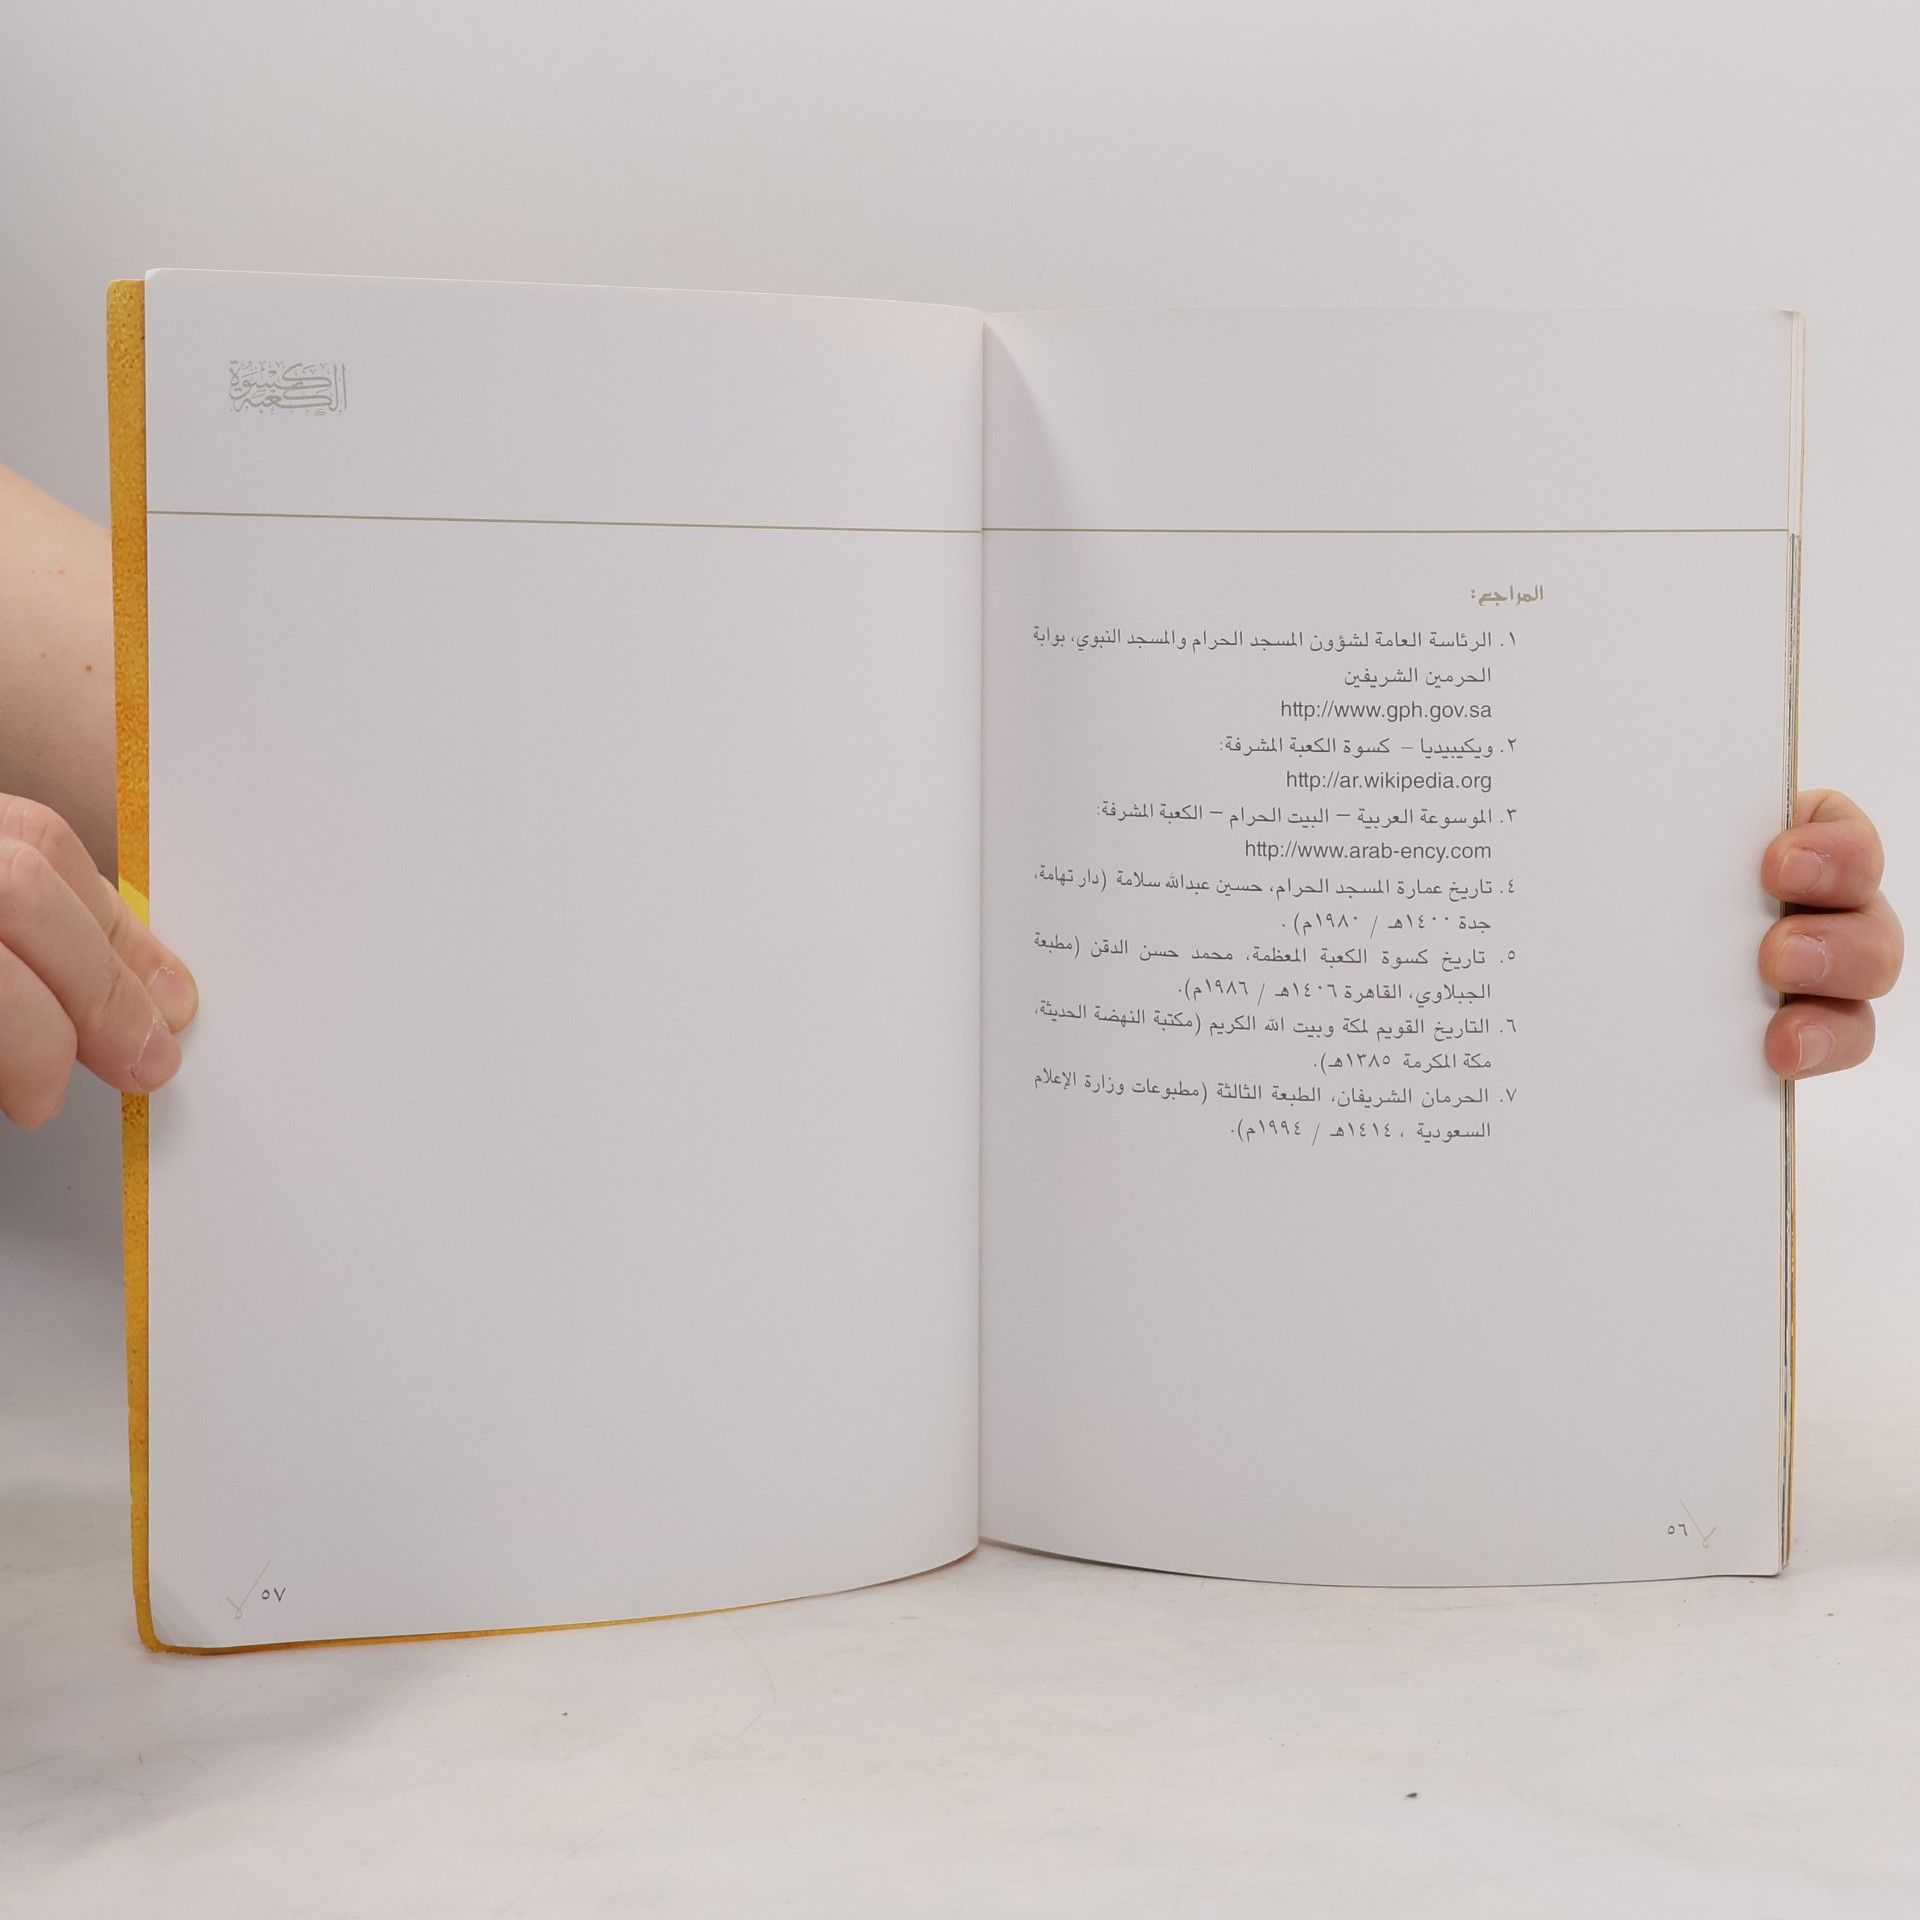 المراجع:
١. الرئاسة العامة لشؤون المسجد الحرام والمسجد النبوي، بوابة
الحرمين الشريفين
http://www.gph.gov.sa
٢. ويكيبيديا – كسوة الكعبة المشرفة:
http://ar.wikipedia.org
٣. الموسوعة العربية – البيت الحرام – الكعبة المشرفة:
http://www.arab-ency.com
٤. تاريخ عمارة المسجد الحرام، حسين عبدالله سلامة (دار تهامة،
جدة ١٤٠٠هـ / ١٩٨٠م).
٥. تاريخ كسوة الكعبة المعظمة، محمد حسن الدقن (مطبعة
الجبلاوي، القاهرة ١٤٠٦هـ / ١٩٨٦م).
٦. التاريخ القويم لمكة وبيت الله الكريم (مكتبة النهضة الحديثة،
مكة المكرمة ١٣٨٥هـ).
٧. الحرمان الشريفان، الطبعة الثالثة (مطبوعات وزارة الإعلام
السعودية ، ١٤١٤هـ / ١٩٩٤م).
٥٦
كسوة
الكعبة
٥٧